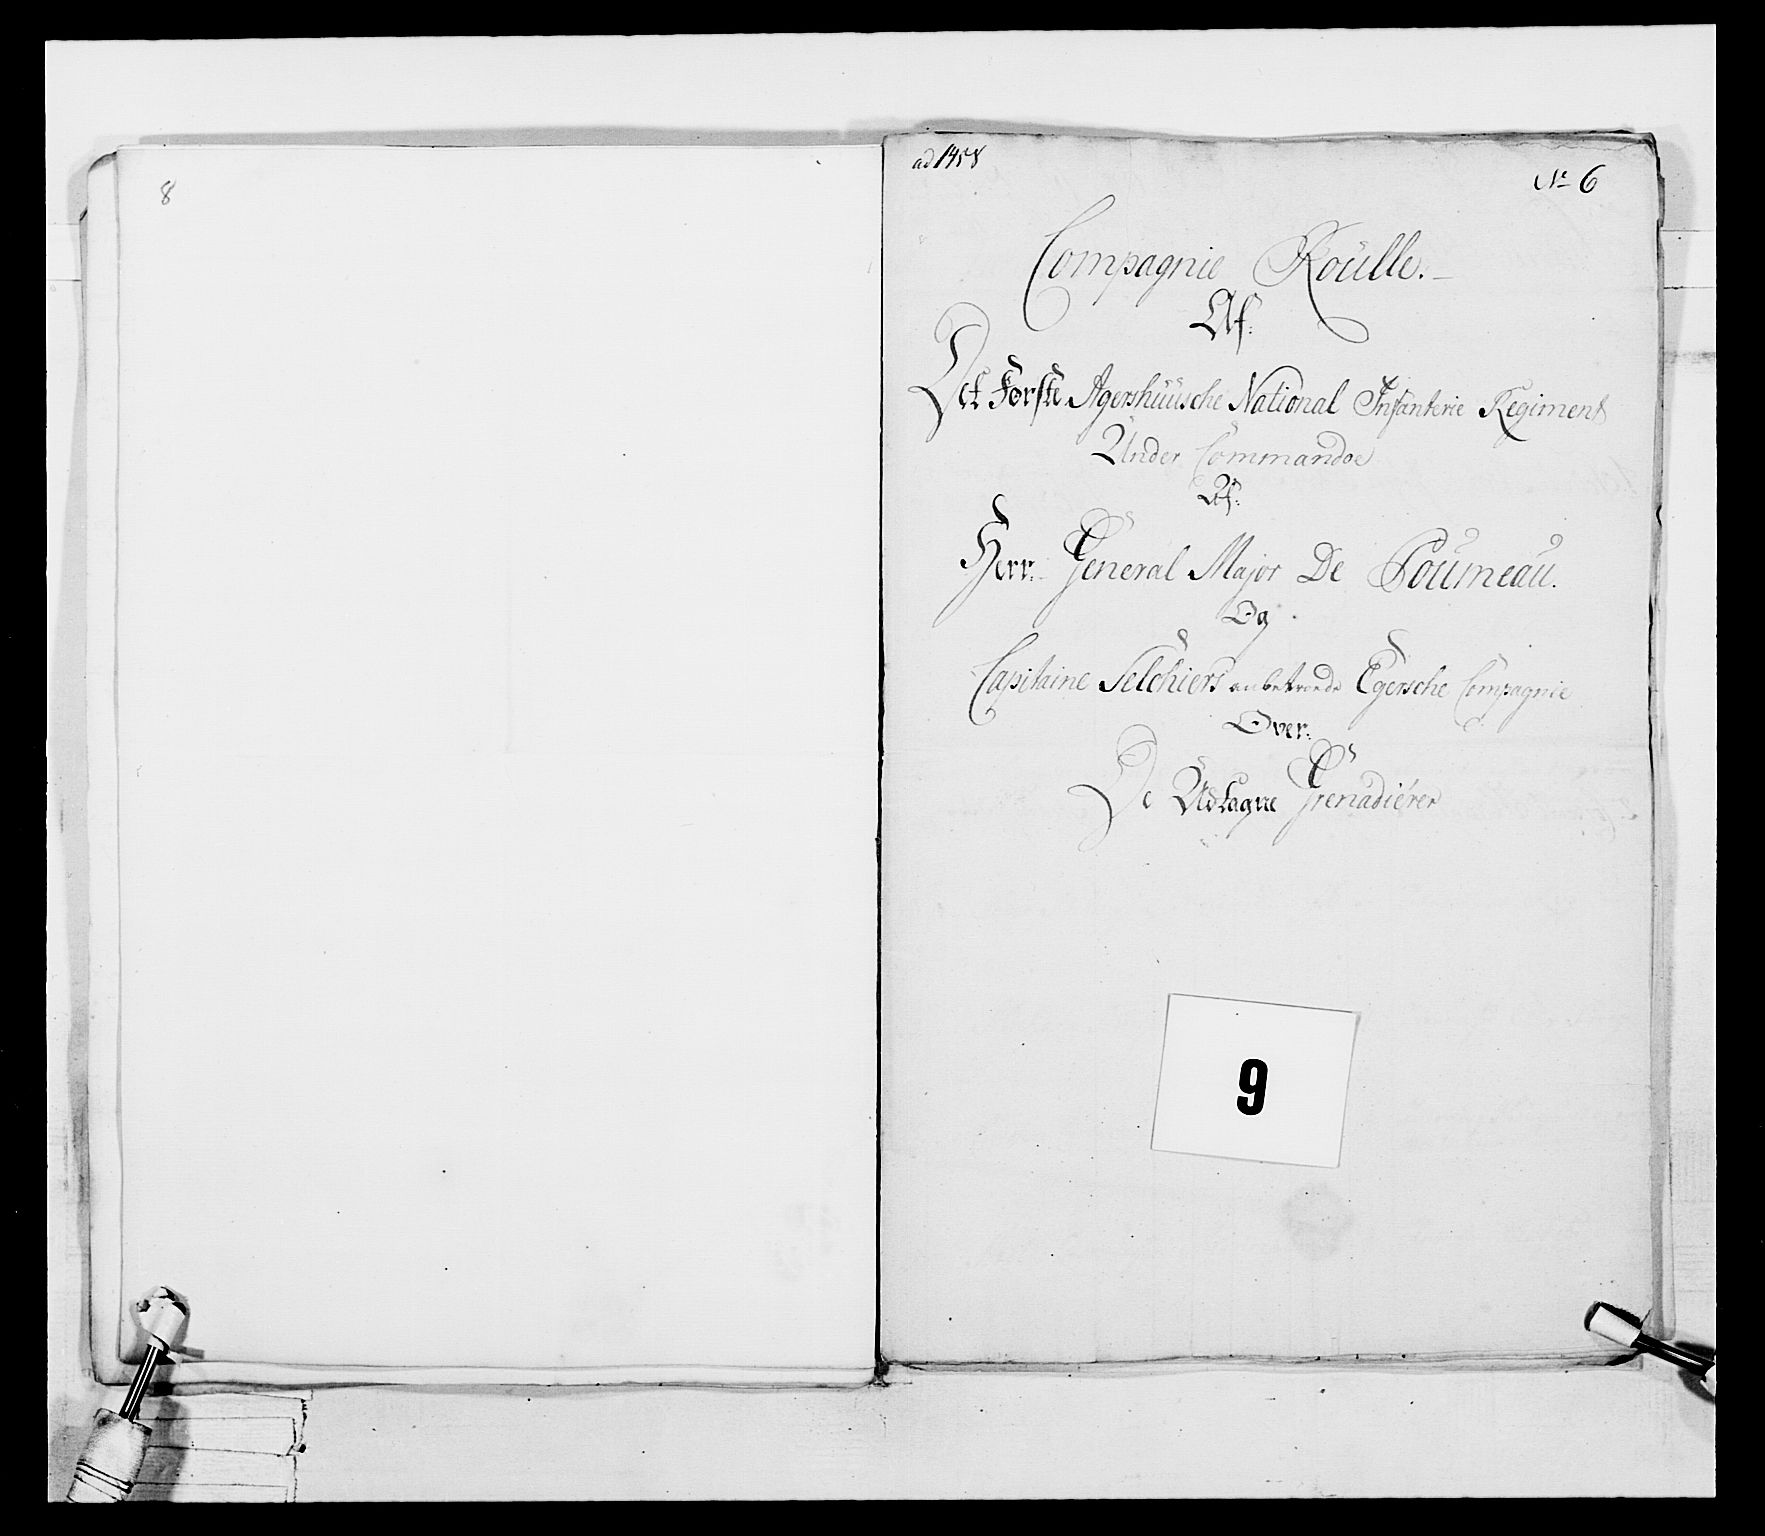 8
ad 1458
No 6
Compagnie Roulle.
Af.
Det Første Agershuusche National Infanterie Regiment
Under Commando
Af.
Herr. General Major De Poumeau.
Og
Capitaine Selchiers anbetroede Egersche Compagnie
Over.
De Udtagne Grenadiérer
9